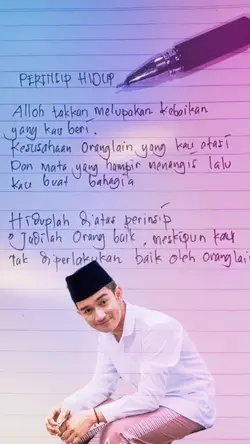 PERINSIP HIDUP
Alloh takkan melupakan kebaikan
yang kau beri.
Kesusahaan Oranglain yang kau atasi
Dan mata yang hampir menangis lalu
kau buat bahagia
Hiduplah diatas perinsip
"Jadilah Orang baik, meskipun kau
tak diperlakukan baik oleh oranglain